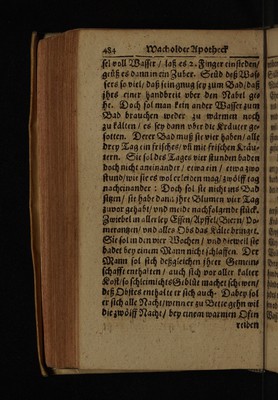 484 Wacholder Apotheck
sel voll Wasser / laß es 2. Finger einsieden /
geüß es dann in ein Zuber. Seüd deß Was-
sers so viel / daß jein gnug sey zum Bad / daß
jhrs einer handbreit vber den Nabel ge-
he. Doch sol man kein ander Wasser zum
Bad brauchen weder zu wärmen noch
zu kälten / es sey dann vber die Kräuter ge-
sotten. Derer Bad muß sie vier haben / alle
drey Tag ein frisches / vñ mit frischen Kräu-
tern. Sie sol des Tages vier stunden baden
doch nicht aneinander / etwa ein / etwa zwo
stund / wie sie es wol erleiden mag / zwölff tag
nacheinander: Doch sol sie nicht ins Bad
sitzen / sie habe dann jhre Blumen vier Tag
zuvor gehabt / vnd meide nachfolgende stück,
Zwiebel in aller ley Essen / Aepffel / Biern / Po-
merantzen / vnd alles Obs das Kälte bringet.
Sie sol in den vier Wochen / vnd dieweil sie
badet bey einem Mann nicht schlaffen. Der
Mann sol sich deßgleichen jhrer Gemein-
schafft enthalten / auch sich vor aller kalter
Kost / so schleimichts Geblüt machet schewen /
deß Obstes enthalte er sich auch. Dabey sol
er sich alle Nacht / wenn er zu Bette gehn wil
die zwölff Nacht / bey einem warmen Ofen
reiben